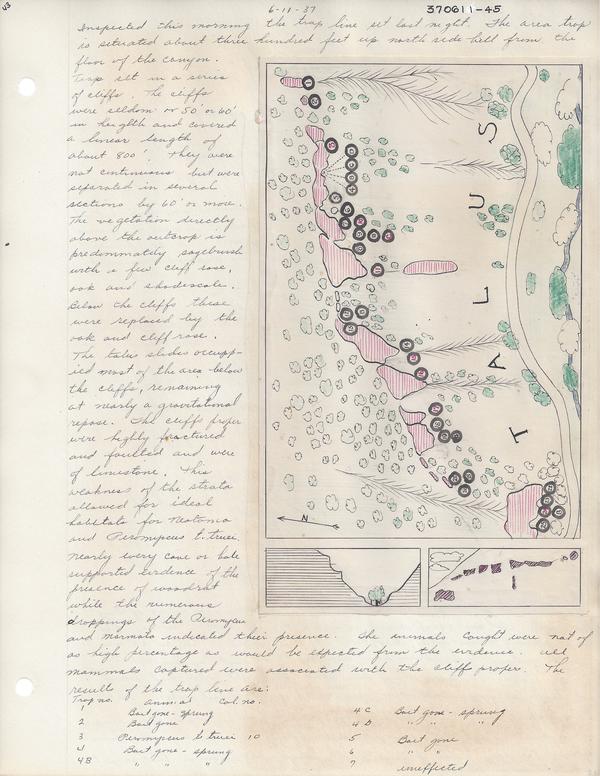 43
6-11-37
370611-45
Inspected this morning the trap line set last night. The area trap
is setuated about three hundred feet up north side hill from the
floor of the canyon.
Trap set in a series
of cliffs. The cliffs
were seldom or 50' or 60'
in heighth and covered
a linear length of
about 800'. They were
not continuous but were
separated in several
sections by 60' or more.
The vegetation directly
above the outcrop is
predominatly sagebrush
with a few cliff rose,
oak and shadscale.
Below the cliffs these
were replaced by the
oak and cliff rose.
The talus slides occupp-
ied most of the area below
the cliffs, remaining
at nearly a gravitational
repose. The cliffs proper
were highly fractured
and faulted and were
of limestone. This
weakness of the strata
allowed for ideal
habitats for Neotoma
and Peromyscus t. truei.
Nearly every cave or hole
supported evidence of the
presence of woodrat
while the numerous
droppings of the Peromyscus
and marmota indicated their presence. The animals caught were not of
as high percentage as would be expected from the evidence. All
mammals captured were associated with the cliffs proper. The
results of the trap line are:
Trap no. Animal Col. no.
1 Bait gone - sprung
2 Bait gone
3 Peromyscus t. truei 10
4 Bait gone - sprung
4B " " "
4C Bait gone - sprung
4D " " "
5 Bait gone
6 " "
7 uneffected
TALUS
N